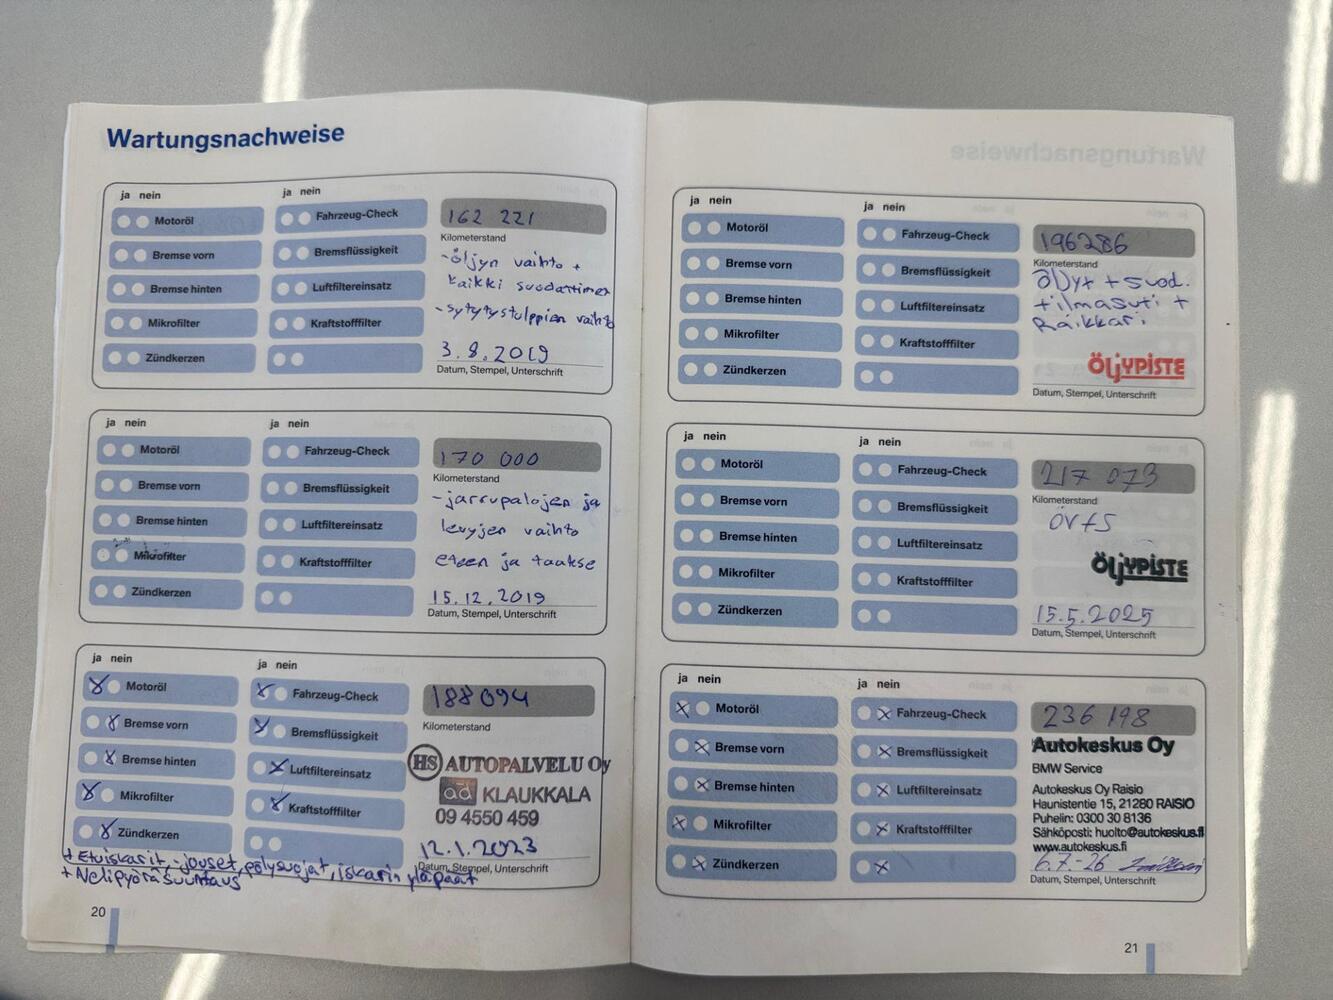 Wartungsnachweise
ja nein
ja nein
Motoröl
Fahrzeug-Check
162 221
Kilometerstand
Bremse vorn
Bremsflüssigkeit
-öljyn vaihto +
kaikki suodattimet
Bremse hinten
Luftfiltereinsatz
-sytytystulppien vaihto
Mikrofilter
Kraftstofffilter
3.8.2019
Zündkerzen
Datum, Stempel, Unterschrift
ja nein
ja nein
Motoröl
Fahrzeug-Check
170 000
Kilometerstand
Bremse vorn
Bremsflüssigkeit
-jarrupalojen ja
levyjen vaihto
Bremse hinten
Luftfiltereinsatz
eteen ja taakse
Mikrofilter
Kraftstofffilter
15.12.2019
Zündkerzen
Datum, Stempel, Unterschrift
ja nein
ja nein
Motoröl
Fahrzeug-Check
188 094
Kilometerstand
Bremse vorn
Bremsflüssigkeit
HS AUTOPALVELU Oy
Bremse hinten
Luftfiltereinsatz
ad KLAUKKALA
Mikrofilter
Kraftstofffilter
09 4550 459
Zündkerzen
12.1.2023
Datum, Stempel, Unterschrift
+ Etuiskarit, -jouset, pölysuojat, iskarin yläpäät
+ Nelipyöräsuuntaus
20
Wartungsnachweise
ja nein
ja nein
Motoröl
Fahrzeug-Check
196286
Kilometerstand
Bremse vorn
Bremsflüssigkeit
öljyt + suod.
Bremse hinten
Luftfiltereinsatz
+ilmasuti +
Raikkari
Mikrofilter
Kraftstofffilter
ÖljYPISTE
Zündkerzen
Datum, Stempel, Unterschrift
ja nein
ja nein
Motoröl
Fahrzeug-Check
217 073
Kilometerstand
Bremse vorn
Bremsflüssigkeit
ÖV+S
Bremse hinten
Luftfiltereinsatz
ÖljYPISTE
Mikrofilter
Kraftstofffilter
15.5.2025
Zündkerzen
Datum, Stempel, Unterschrift
ja nein
ja nein
Motoröl
Fahrzeug-Check
236 198
Autokeskus Oy
Bremse vorn
Bremsflüssigkeit
BMW Service
Bremse hinten
Luftfiltereinsatz
Autokeskus Oy Raisio
Haunistentie 15, 21280 RAISIO
Puhelin: 0300 30 8136
Mikrofilter
Kraftstofffilter
Sähköposti: huolto@autokeskus.fi
www.autokeskus.fi
Zündkerzen
6.7-26
Datum, Stempel, Unterschrift
21